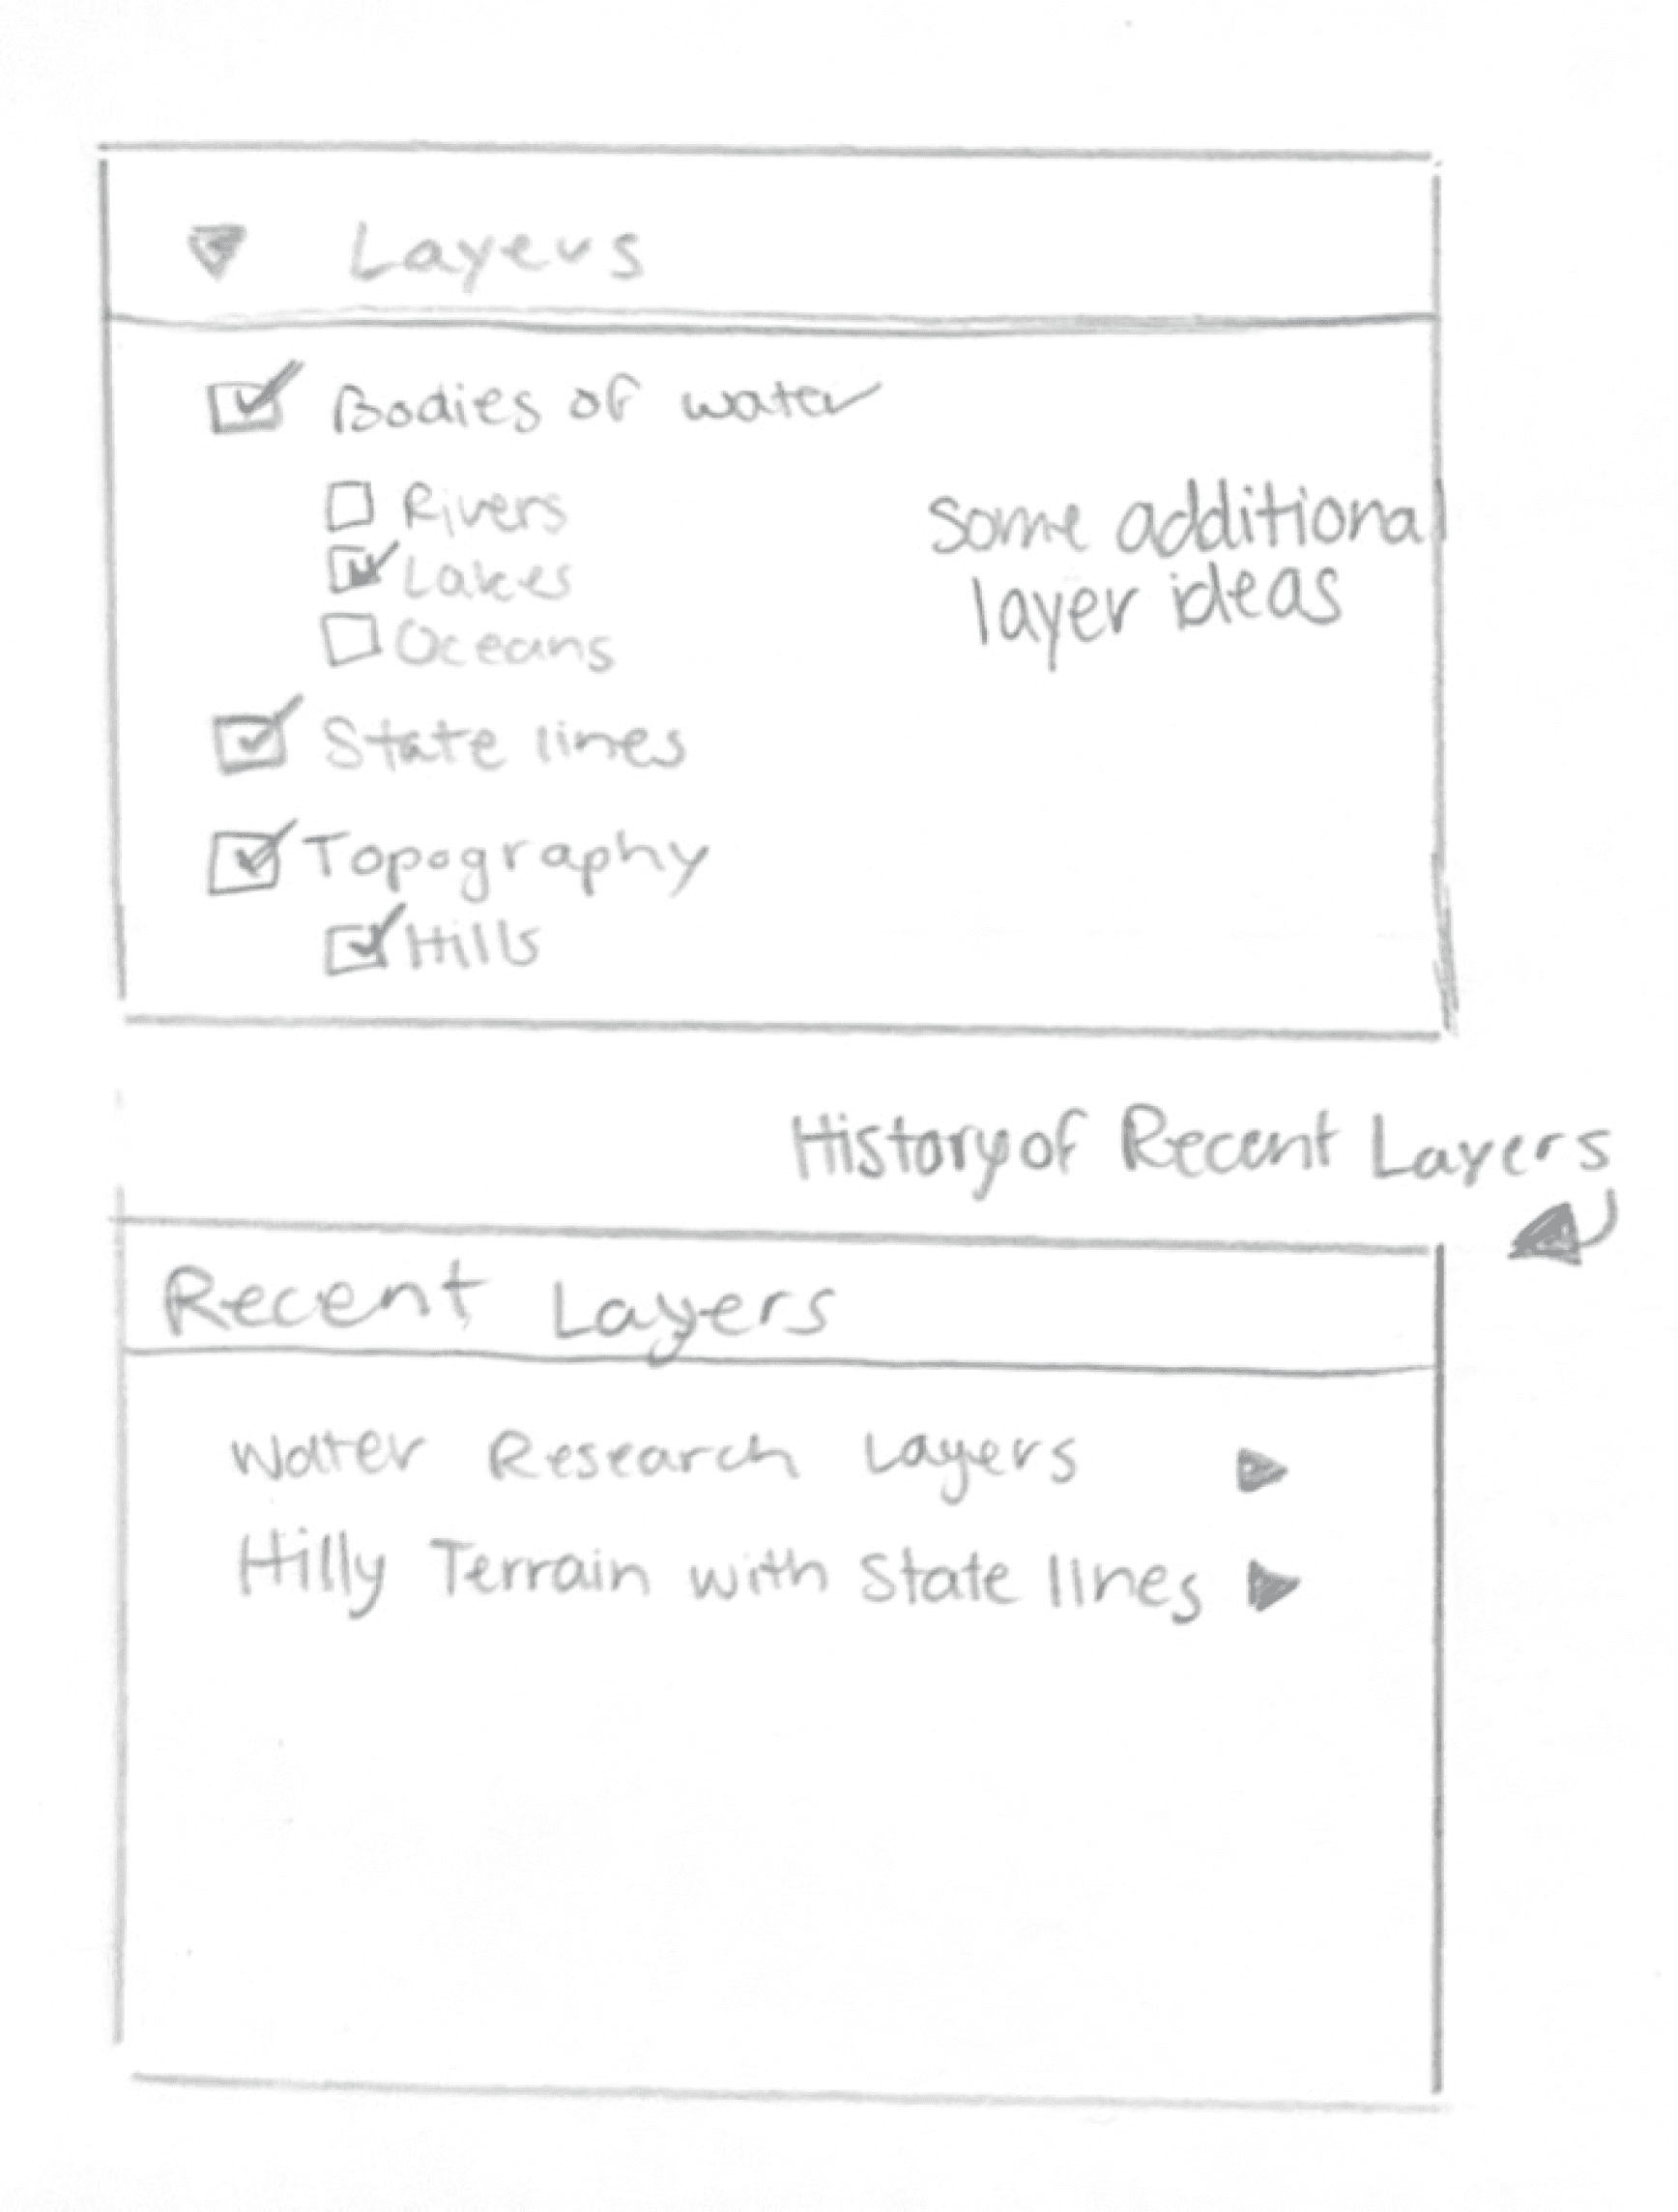 Layers
Bodies of water
Rivers
Lakes
Oceans
some additional
layer ideas
State lines
Topography
Hills
History of Recent Layers
Recent Layers
Water Research Layers
Hilly Terrain with State lines